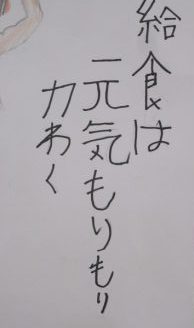 給食は
元気もりもり
力わく